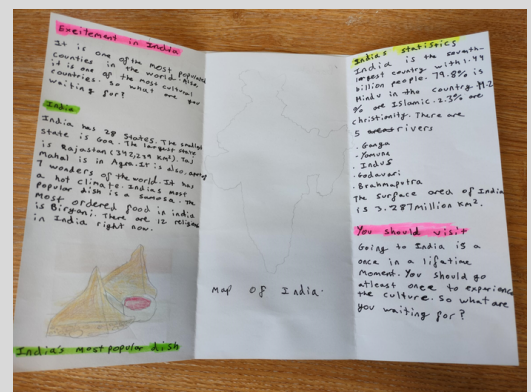 Excitement in India
It is one of the most populated
counties in the world. Also
it is one of the most cultural
countries. so what are you
waiting for?
India
India has 28 States. The smallest
state is Goa. The largest state
is Rajastan (342,239 km²). Taj
Mahal is in Agra. It is also among
7 wonders of the world. It has
a hot climate. India's most
popular dish is a samosa. The
most ordered food in india
is Biryani. There are 12 religions
in India right now.
India's most popular dish
Map of India.
India's statistics
India is the seventh
largest country with 1.44
billion people. 79.8% is
Hindu in the country 14.2
% are Islamic. 2.3% are
christianity. There are
5 rivers
. Ganga
. Yamuna
. Indus
. Godavari
. Brahmaputra
The surface area of India
is 3.287 million km².
You should visit
Going to India is a
once in a lifetime
moment. You should go
atleast once to experience
the culture. So what are
you waiting for?